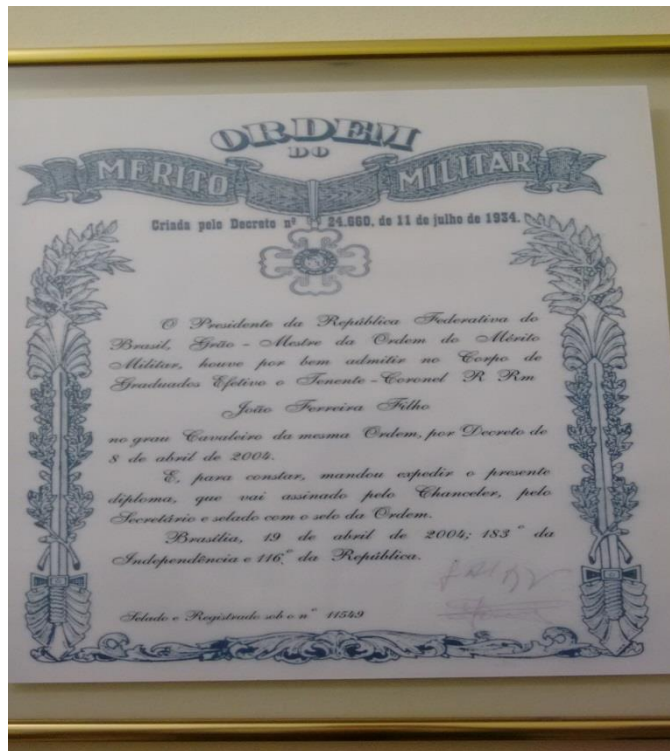 ORDEM
DO
MÉRITO MILITAR
Criada pelo Decreto nº 24.660, de 11 de julho de 1934.
O Presidente da República Federativa do
Brasil, Grão - Mestre da Ordem do Mérito
Militar, houve por bem admitir no Corpo de
Graduados Efetivo o Tenente - Coronel R Rm
João Ferreira Filho
no grau Cavaleiro da mesma Ordem, por Decreto de
8 de abril de 2004.
E, para constar, mandou expedir o presente
diploma, que vai assinado pelo Chanceler, pelo
Secretário e selado com o selo da Ordem.
Brasília, 19 de abril de 2004; 183º da
Independência e 116º da República.
Selado e Registrado sob o nº 11549